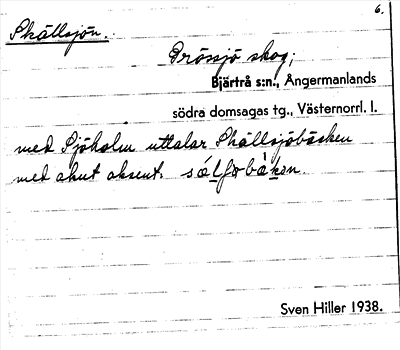 6.
Skällsjön.
Brössjö skog;
Bjärtrå s:n., Ångermanlands
södra domsagas tg., Västernorrl. l.
med Sjöholm uttalar Skällsjöbäcken
med akut aksent.
Sven Hiller 1938.